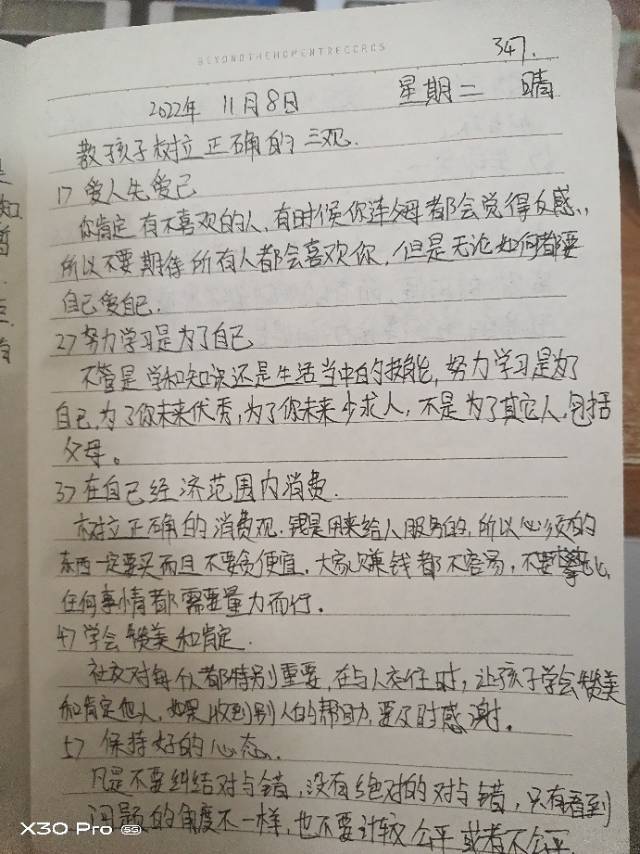 BEYONDTHEMOMENTRECORDS
347.
2022年 11月8日 星期二 晴
教孩子树立正确的三观.
1> 爱人先爱己
你肯定有不喜欢的人,有时候你连父母都会觉得反感,
所以不要期待所有人都会喜欢你,但是无论如何都要
自己爱自己.
2> 努力学习是为了自己
不管是学和知识还是生活当中的技能,努力学习是为了
自己,为了你未来优秀,为了你未来少求人,不是为了其它人,包括
父母。
3> 在自己经济范围内消费.
树立正确的消费观.钱是用来给人服务的,所以必须的
东西一定要买而且不要贪便宜.大家赚钱都不容易,不要攀比,
任何事情都需要量力而行.
4> 学会赞美和肯定.
社交对每个人都特别重要,在与人交往时,让孩子学会赞美
和肯定他人,如果收到别人的帮助,要及时感谢.
5> 保持好的心态.
凡是不要纠结对与错,没有绝对的对与错,只有看到
问题的角度不一样,也不要计较公平或者不公平.
X30 Pro 5G
知